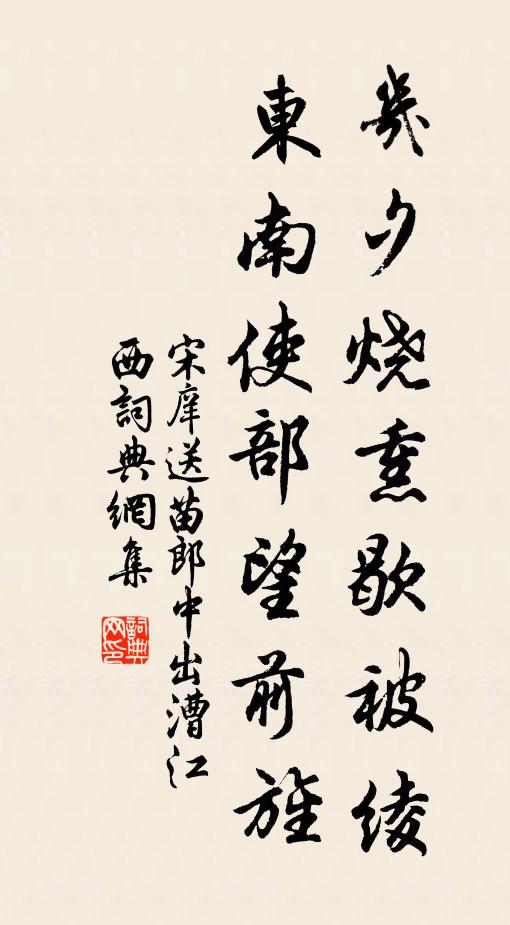 幾夕烧熏歇被绫
東南使部望前旌
宋庠送苗郎中出漕江
西詞典網集
詞典网印